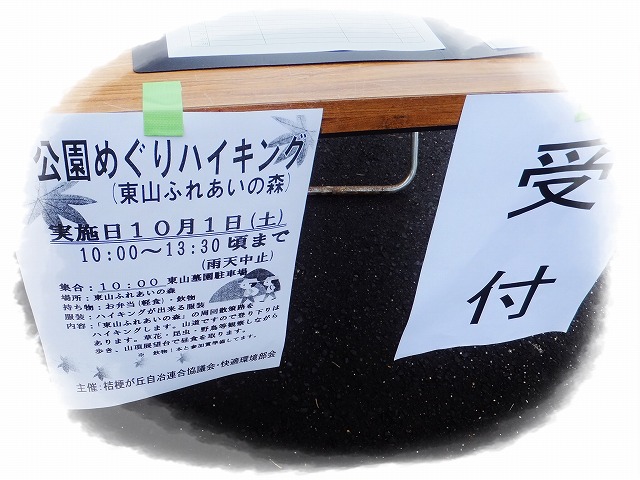 公園めぐりハイキング
(東山ふれあいの森)
実施日10月1日(土)
10:00～13:30頃まで
(雨天中止)
集合:10:00 東山墓園駐車場
場所:東山ふれあいの森
持ち物:お弁当(軽食)・飲物
服装:ハイキングが出来る服装
内容:「東山ふれあいの森」の周回散策路を
ハイキングします。山道ですので登り下りは
あります。草花・昆虫・野鳥等観察しながら
歩き、山頂展望台で昼食を取ります。
※ 飲物1本と参加賞準備してます。
主催:桔梗が丘自治連合協議会・快適環境部会
受
付